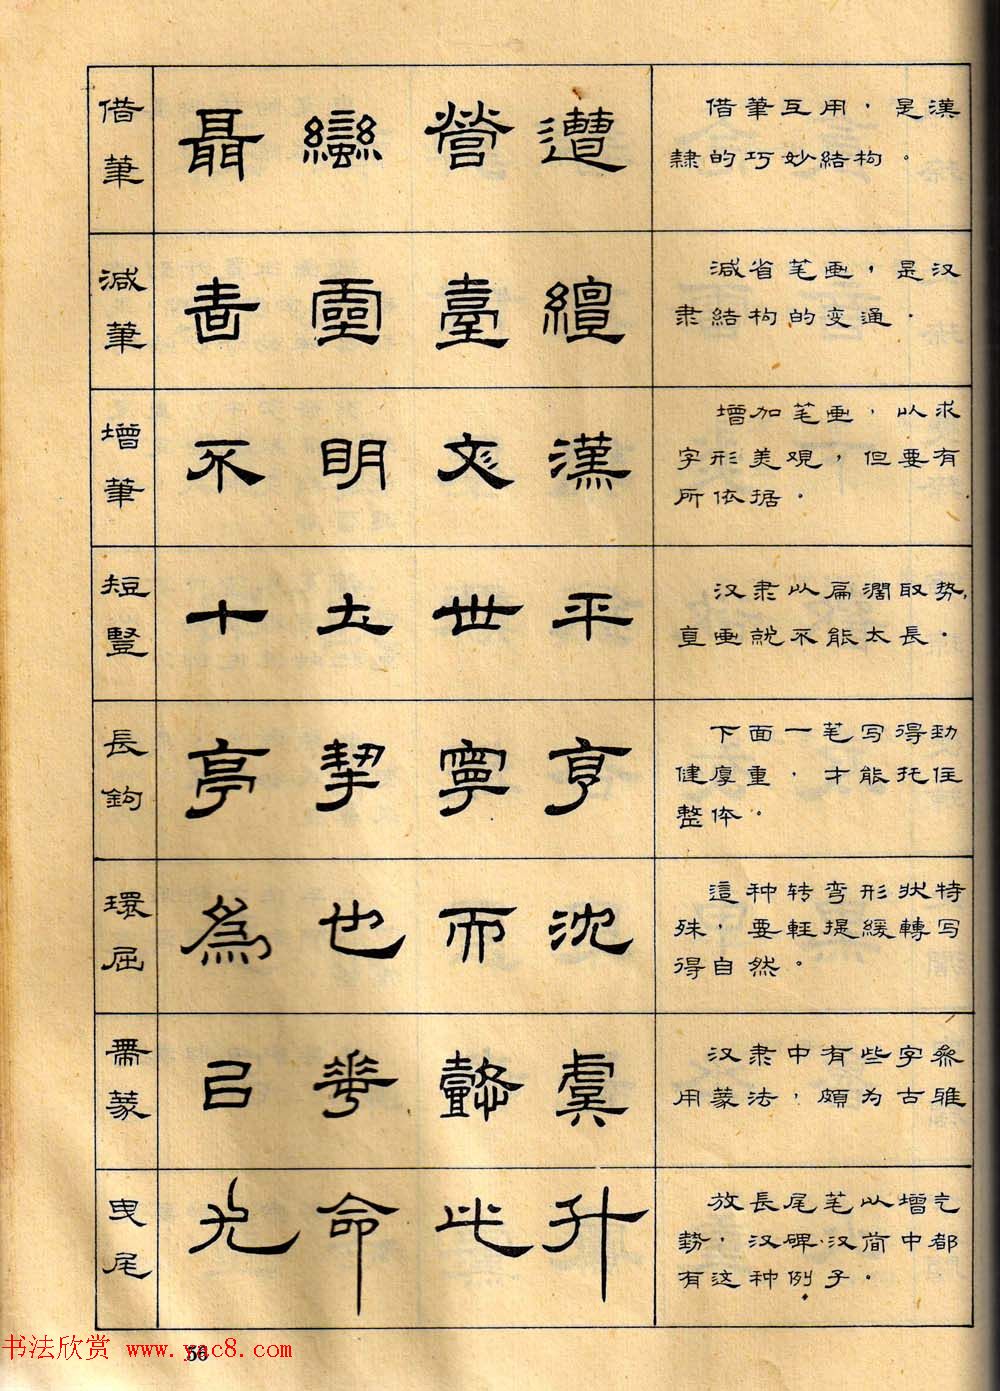 借筆
聶 蠻 營 遭
借筆互用，是漢
隸的巧妙結构。
減筆
書 靈 臺 纏
減省笔画，是汉
隶結构的变通．
增筆
不 明 文 漢
增加笔画，以求
字形美观，但要有
所依据。
短豎
十 土 世 平
汉隶以扁濶取势，
直画就不能太長．
長鉤
亭 挈 寧 亨
下面一笔写得劲
健厚重，才能托住
整体。
環屈
為 也 而 沈
這种转弯形状特
殊，要軽提緩轉写
得自然。
帶篆
己 華 懿 虞
汉隶中有些字叅
用篆法，頗为古雅
曳尾
光 命 此 升
放長尾笔以增气
勢，汉碑·汉简中都
有这种例子。
56
书法欣赏 www.yac8.com